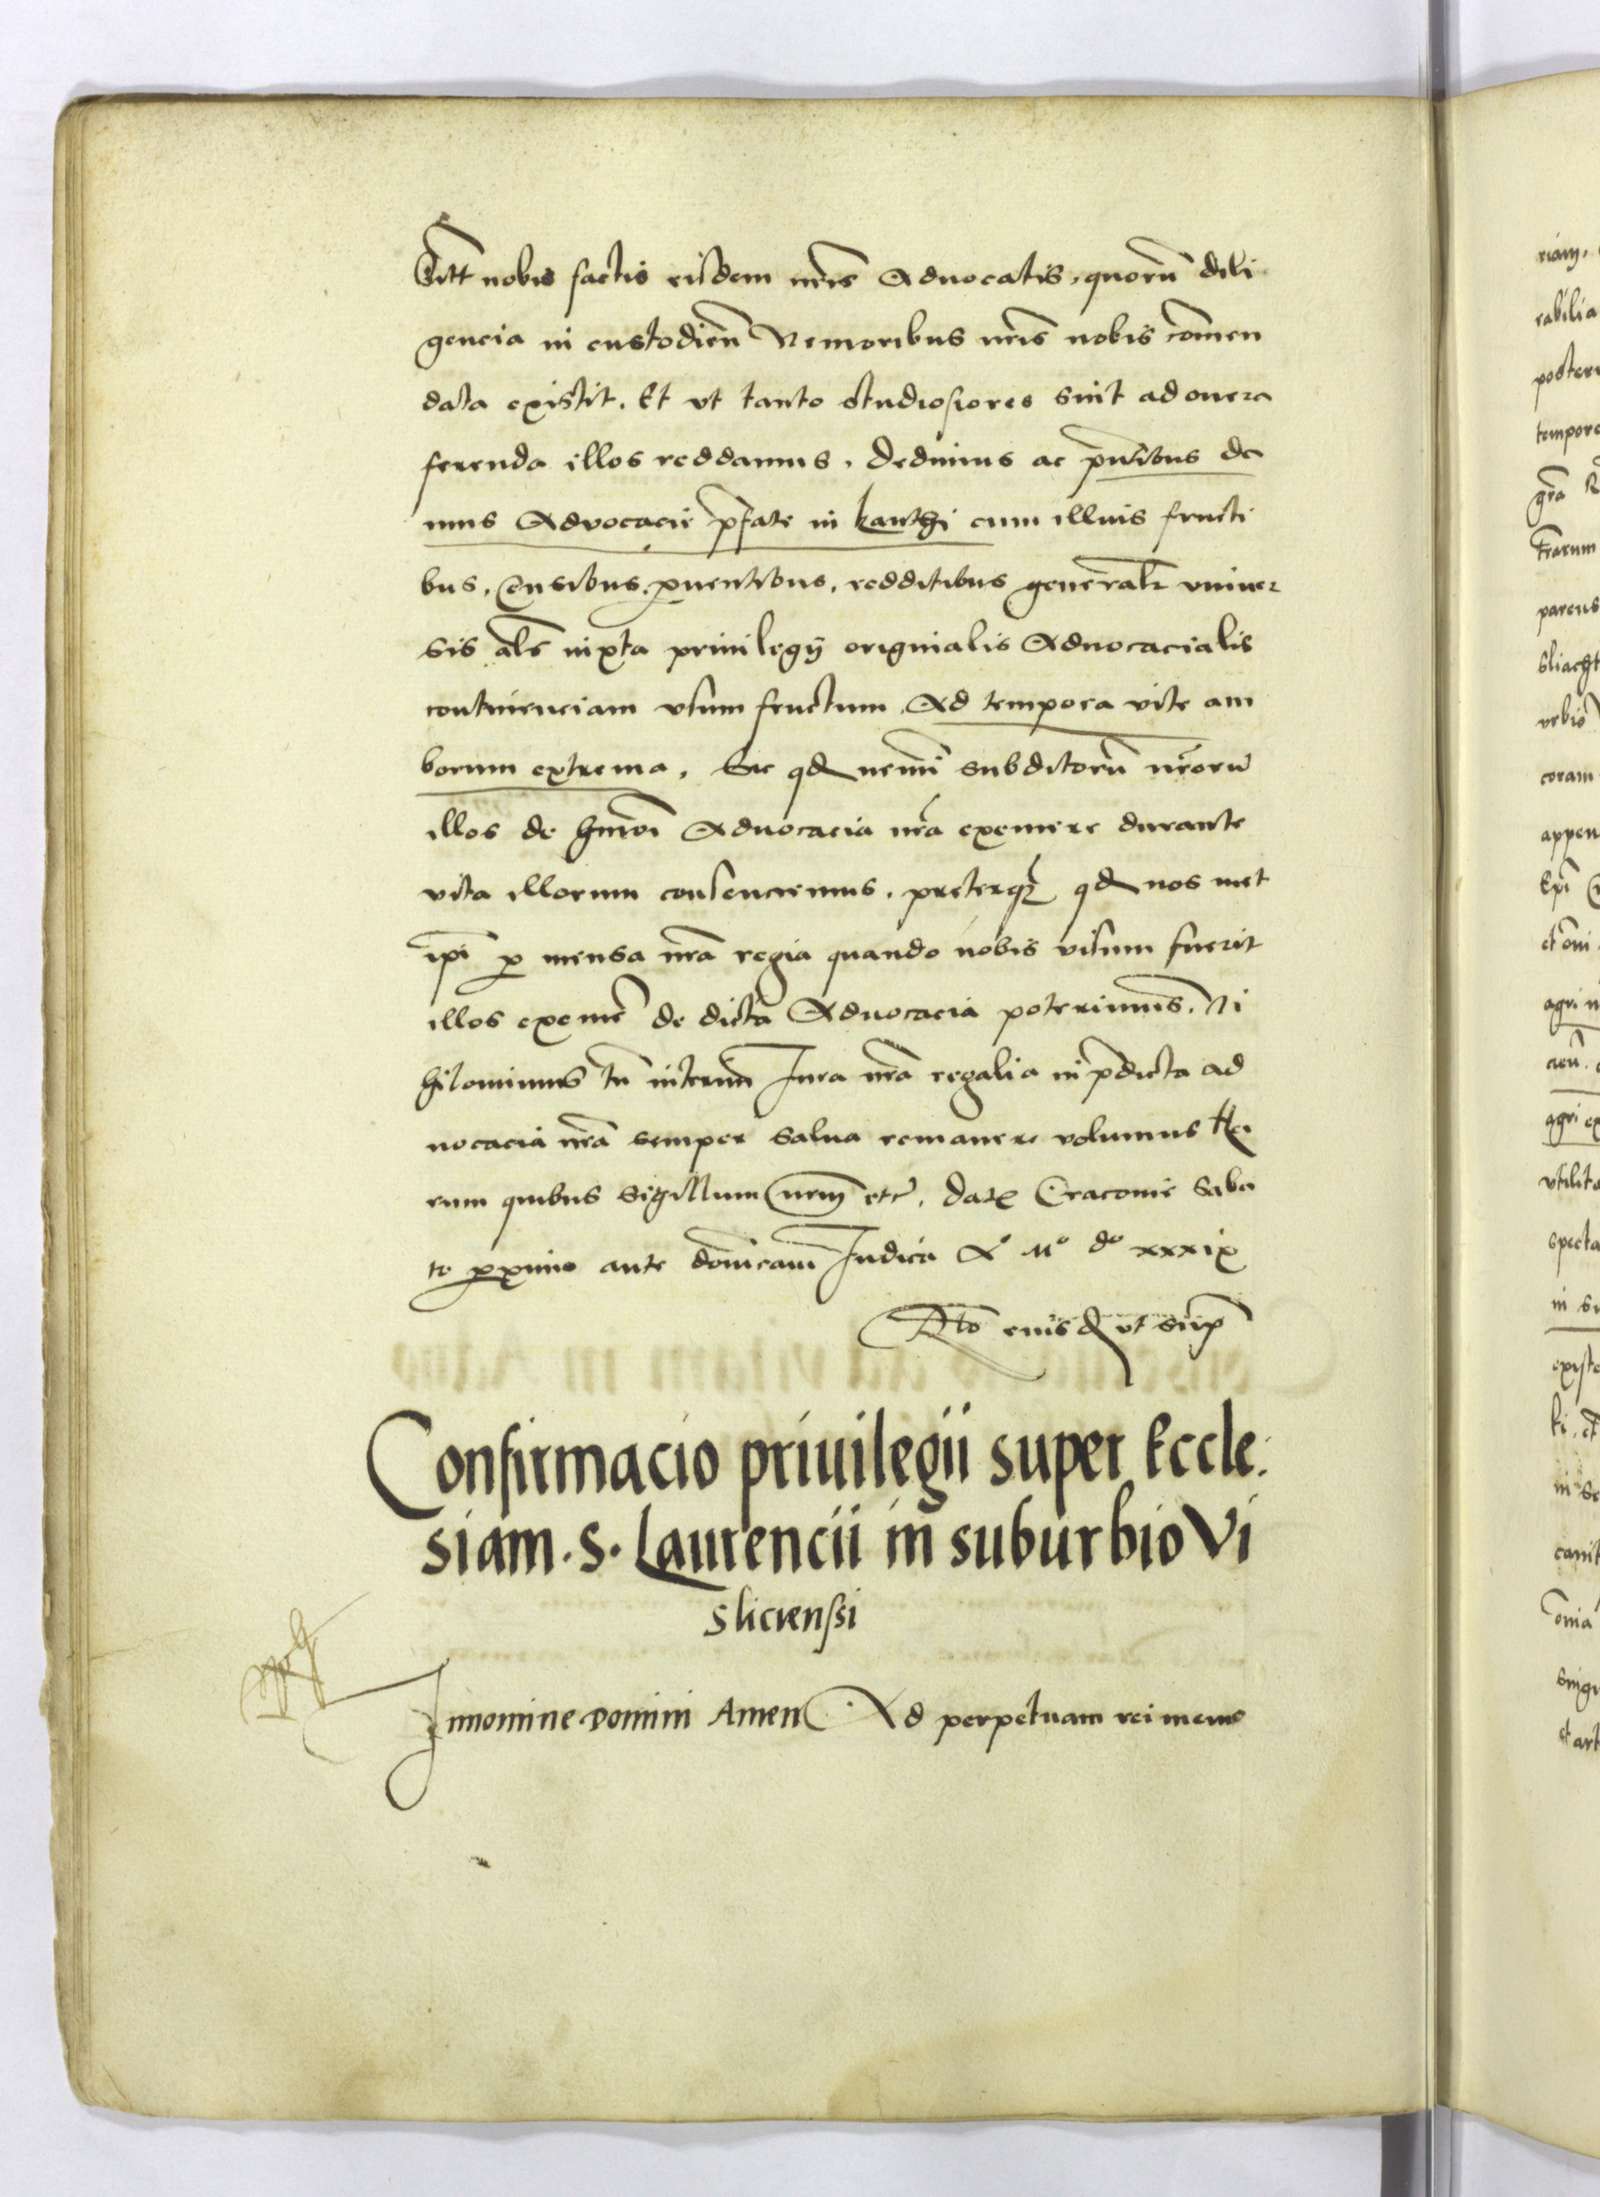 nobis factis eisdem nr̃is Aduocatis, quorũ dili
gencia in custodien̄ Nemoribus nr̃is nobis com̄en
data existit. Et vt tanto studiosiores sint ad onera
ferenda illos reddamus. Dedimus ac pn̄tibus da
mus Advocacie p̄fate in kanthi cum illius fructi
bus, Censibus, ꝓuentibus, redditibus gener̃alr̃ vniuer
sis al̄s iuxta priuilegÿ originialis Aduocacialis
continenciam vsumfructum, Ad tempora vite am
borum extrema. Sic qđ nemĩ subditorũ nr̃orũ
illos de hmōi Aduocacia nr̃a exemere durante
vita illorum consenciemus. preterqꝫ qđ nos met
ip̄i ꝓ mensa nr̃a regia quando nobis visum fuerit
illos exemē de dicta Aduocacia poterimus. Ni
hilominus tñ interim̄ Iura nr̃a regalia in p̄dicta ad
uocacia nr̃a semper salua remanere volumus Ha
rum quibus sigillum nrm̃ etc̃. datꝫ Cracouie Saba
to ꝓximo ante dom̃icam Iudica Aº Mº dº xxxix
Rl̃o eiusđ vt sup̃
Confirmacio priuilegii super Eccle:
siam. S. Laurencii in suburbio Vi
sliciensi
In nomine Domini Amen Ad perpetuam rei memo
riam.
rabilia
posteri
tempore
gr̃a
tr̃arum
parens
sliacht
vrbio
coram
appen
Ep̃i
et om̃i
agri
agri ex
vtilita
specta
in su
existe
ki. et
in se
om̃ia
et art